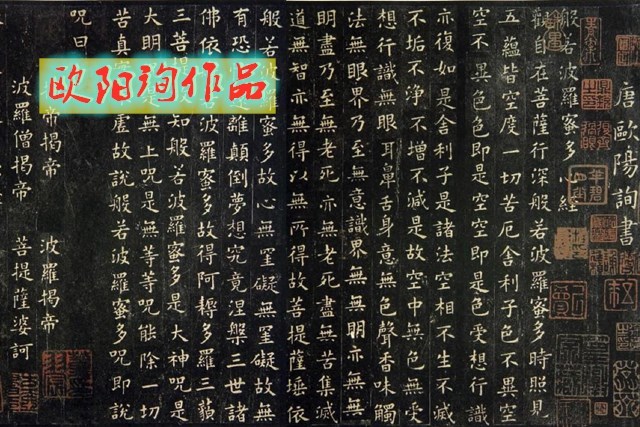 唐歐陽詢書
般若波羅蜜多心經
觀自在菩薩行深般若波羅蜜多時照見
五蘊皆空度一切苦厄舍利子色不異空
空不異色色即是空空即是色受想行識
亦復如是舍利子是諸法空相不生不滅
不垢不淨不增不減是故空中無色無受
想行識無眼耳鼻舌身意無色聲香味觸
法無眼界乃至無意識界無無明亦無無
明盡乃至無老死亦無老死盡無苦集滅
道無智亦無得以無所得故菩提薩埵依
般若波羅蜜多故心無罣礙無罣礙故無
有恐離顛倒夢想究竟涅槃三世諸
佛依若波羅蜜多故得阿耨多羅三藐
三菩提知般若波羅蜜多是大神呪是
大明是無上呪是無等等呪能除一切
苦真虛故說般若波羅蜜多呪即說
呪曰
帝揭帝 波羅揭帝
波羅僧揭帝 菩提薩婆訶
欧阳询作品